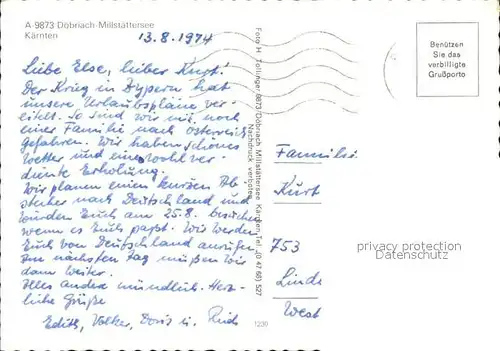 A-9873 Döbriach-Millstättersee
Kärnten
13.8.1974
Liebe Else, lieber Kurt!
Der Krieg in Zypern hat
unsere Urlaubspläne ver-
eitelt. So sind wir mit noch
einer Familie nach Österreich
gefahren. Wir haben schönes
Wetter und eine wohl ver-
diente Erholung.
Wir planen einen kurzen Ab
stecher nach Deutschland und
würden Euch am 25.8. besuchen
wenn es Euch paßt. Wir werden
Euch von Deutschland anrufen
Im nächsten Tag müßen wir
dann weiter.
Alles andre mündlich. Herz-
liche Grüße
Edith, Volker, Doris u.
Foto H. Tollinger, 9873 Döbriach Millstättersee Kärnten, Tel. (0 47 66) 527
Nachdruck verboten
1230
Benützen
Sie das
verbilligte
Grußporto
Familie
Kurt
753
privacy protection
Datenschutz
West